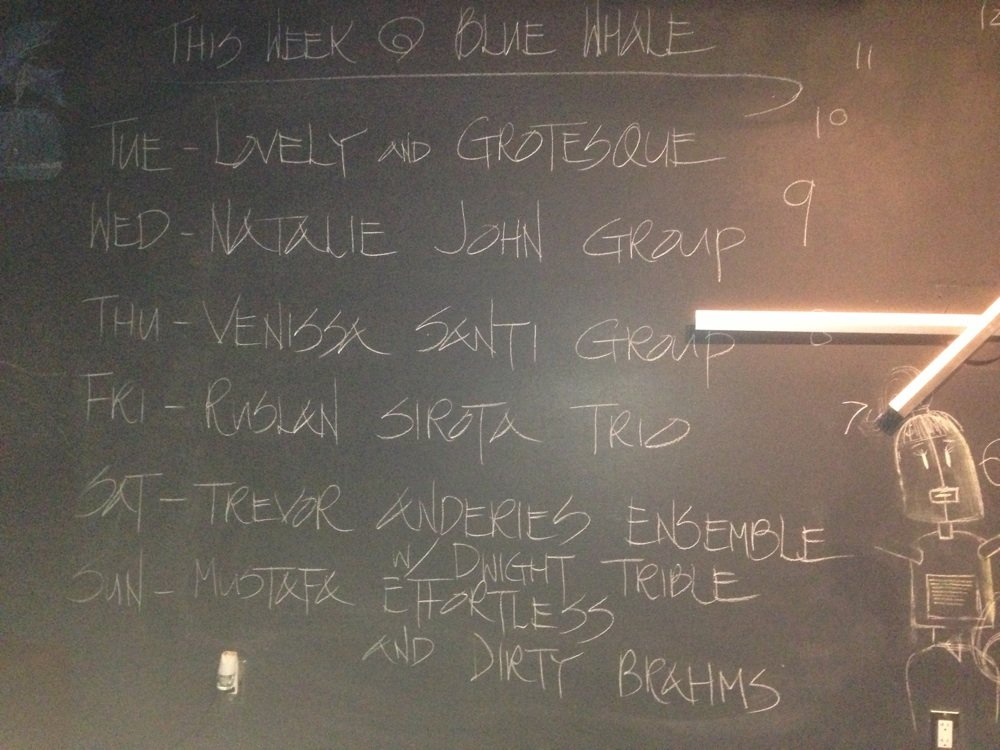 THIS WEEK @ BLUE WHALE
TUE - LOVELY AND GROTESQUE
WED - NATALIE JOHN GROUP
THU - VENISSA SANTI GROUP
FRI - RUSLAN SIROTA TRIO
SAT - TREVOR ANDERIES ENSEMBLE
W/ DWIGHT TRIBLE
SUN - MUSTAFA EFFORTLESS
AND DIRTY BRAHMS
12
11
10
9
8
7
6